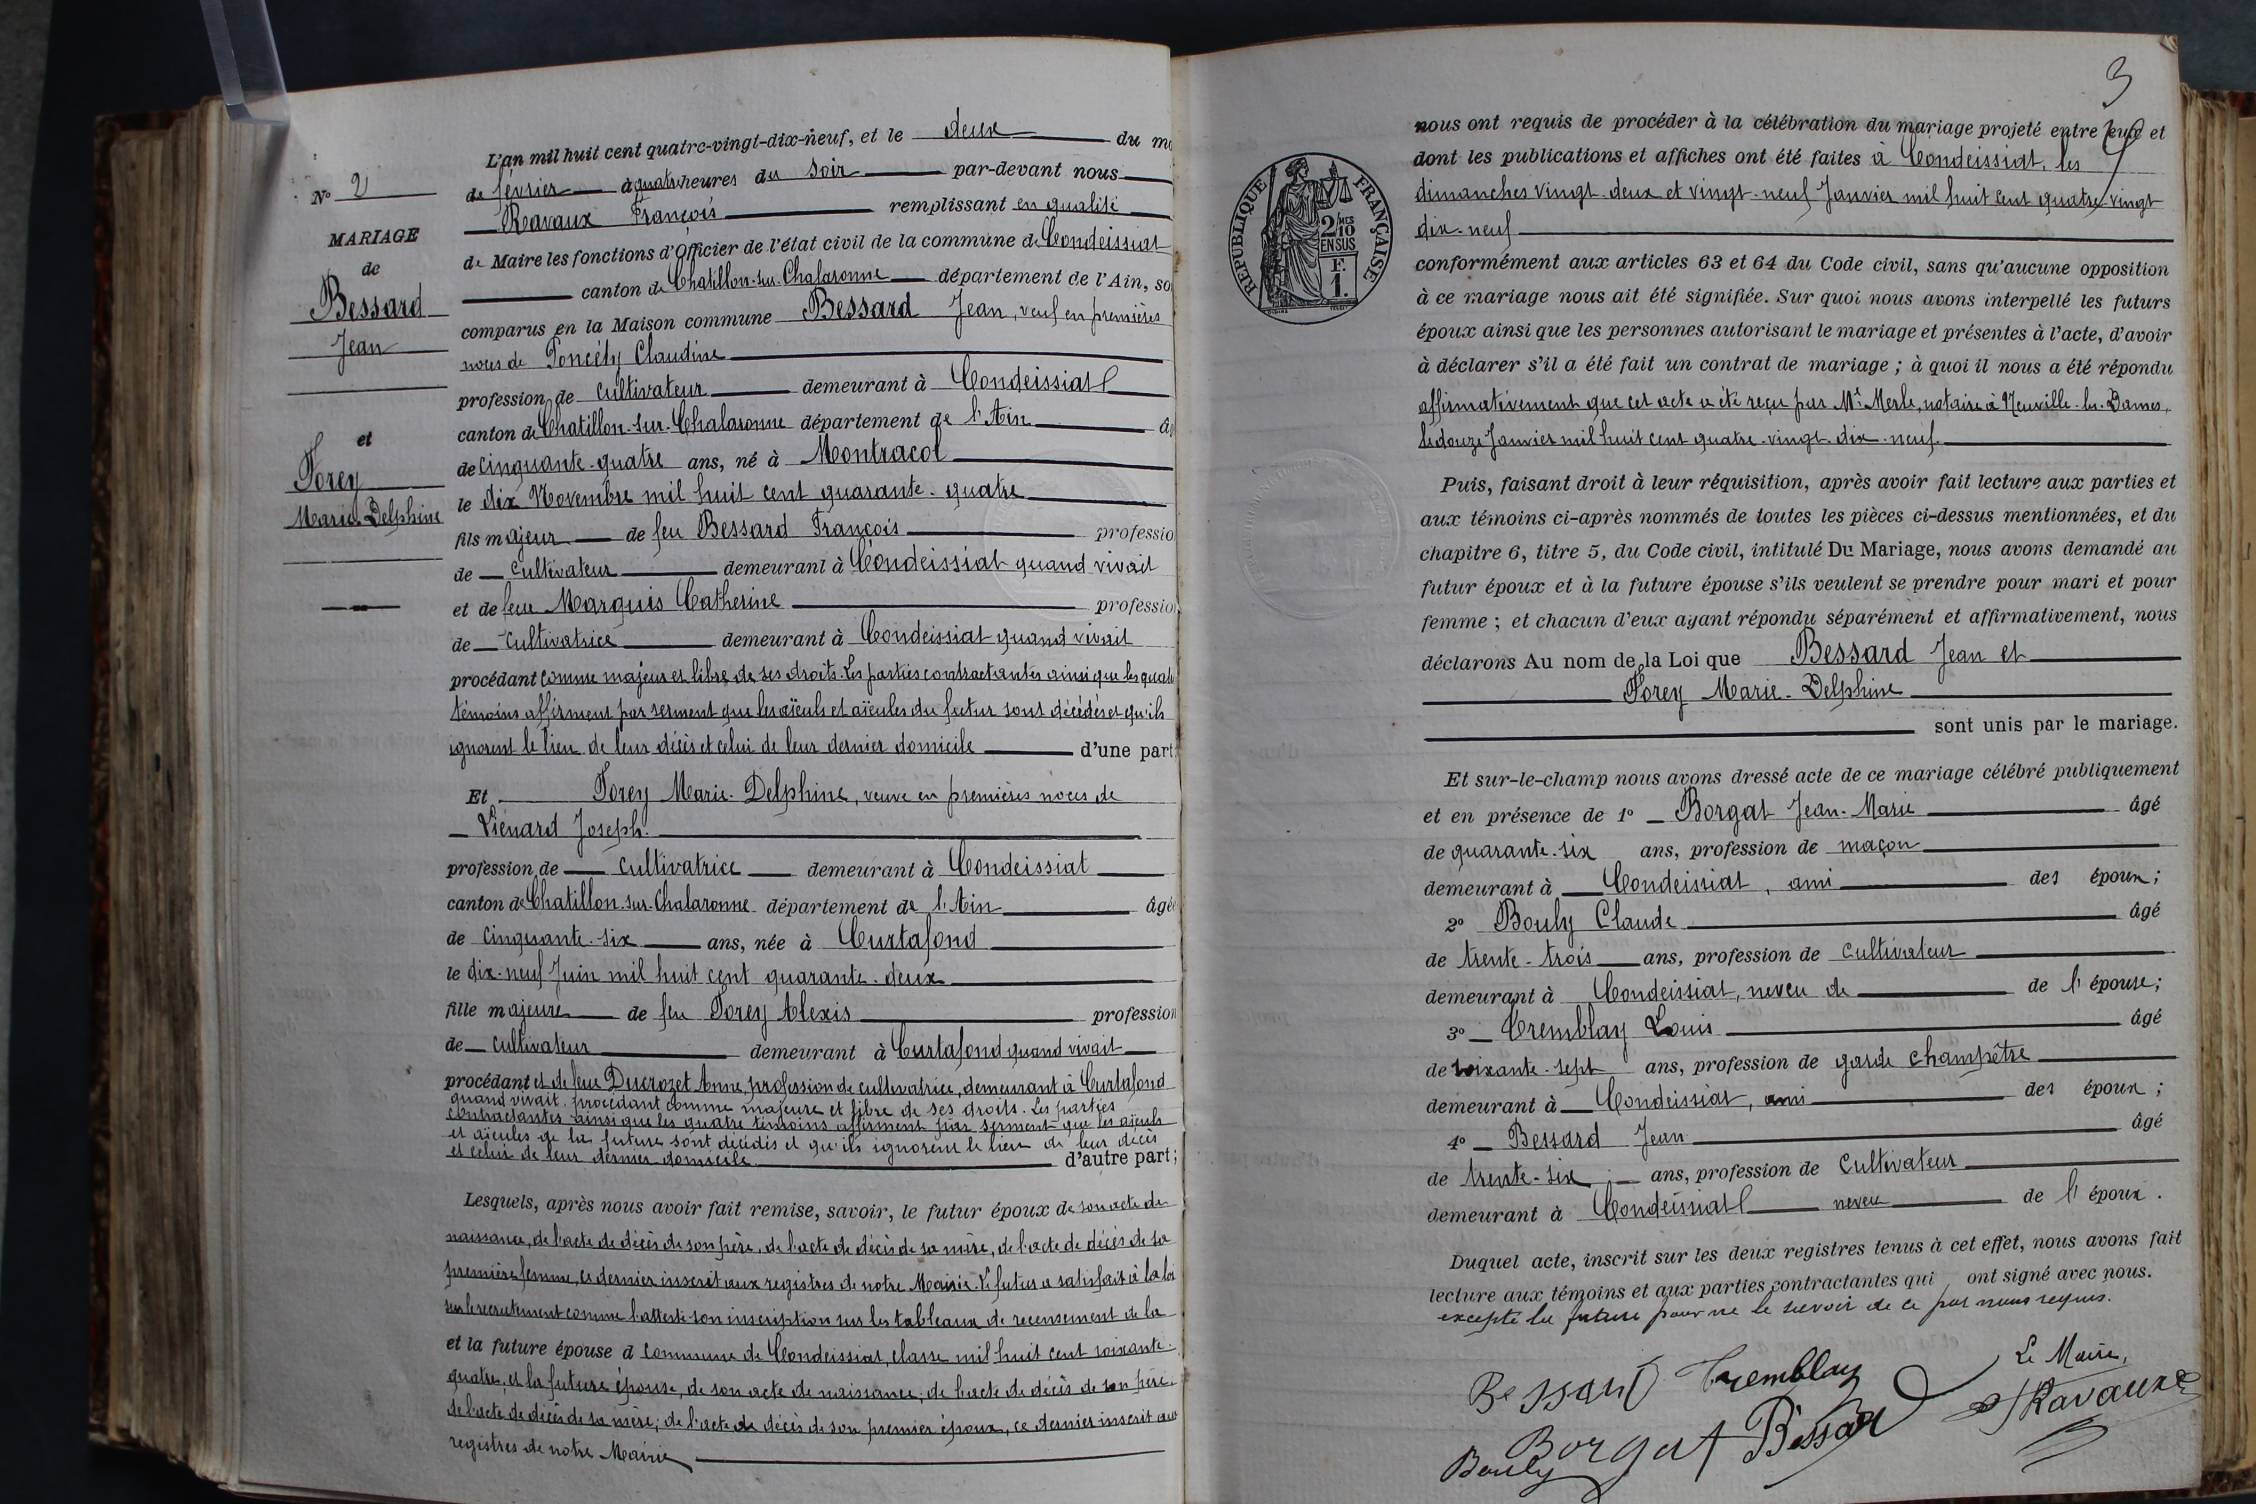 L'an mil huit cent quatre-vingt-dix-neuf, et le deux du
de février à quatre heures du soir par-devant nous
Ravaux François remplissant en qualité
de Maire les fonctions d'Officier de l'état civil de la commune de Condeissiat
canton de Chatillon-sur-Chalaronne département de l'Ain, so
comparus en la Maison commune Bessard Jean, veuf en premières
noces de Poncéty Claudine
profession de cultivateur demeurant à Condeissiat
canton de Chatillon-sur-Chalaronne département de l'Ain
de cinquante-quatre ans, né à Montracol
le dix Novembre mil huit cent quarante-quatre
fils majeur de feu Bessard François professio
de cultivateur demeurant à Condeissiat quand vivait
et de feue Marquis Catherine profession
de cultivatrice demeurant à Condeissiat quand vivait
procédant comme majeur et libre de ses droits. Les parties contractantes ainsi que les quatre
témoins affirment par serment que les aïeuls et aïeules du futur sont décédés et qu'ils
ignorent le lieu de leur décès et celui de leur dernier domicile d'une part;
Et Forey Marie-Delphine, veuve en premières noces de
Viénard Joseph.
profession de cultivatrice demeurant à Condeissiat
canton de Chatillon-sur-Chalaronne département de l'Ain âgée
de cinquante-six ans, née à Curtafond
le dix-neuf Juin mil huit cent quarante-deux
fille majeure de feu Forey Alexis profession
de cultivateur demeurant à Curtafond quand vivait
procédant et de feue Ducrozet Anne, profession de cultivatrice, demeurant à Curtafond
quand vivait, procédant comme majeure et libre de ses droits. Les parties
contractantes ainsi que les quatre témoins affirment par serment que les aïeuls
et aïeules de la future sont décédés et qu'ils ignorent le lieu de leur décès
et celui de leur dernier domicile d'autre part;
Lesquels, après nous avoir fait remise, savoir, le futur époux de son acte de
naissance, de l'acte de décès de son père, de l'acte de décès de sa mère, de l'acte de décès de sa
première femme, ce dernier inscrit aux registres de notre Mairie. Le futur a satisfait à la loi
sur le recrutement comme l'atteste son inscription sur les tableaux de recensement de la
et la future épouse d commune de Condeissiat, classe mil huit cent soixante-
quatre, et la future épouse, de son acte de naissance; de l'acte de décès de son père;
de l'acte de décès de sa mère; de l'acte de décès de son premier époux, ce dernier inscrit aux
registres de notre Mairie
No 2
MARIAGE
de
Bessard
Jean
et
Forey
Marie-Delphine
3
nous ont requis de procéder à la célébration du mariage projeté entre eux et
dont les publications et affiches ont été faites à Condeissiat, les
dimanches vingt-deux et vingt-neuf Janvier mil huit cent quatre-vingt
dix-neuf
conformément aux articles 63 et 64 du Code civil, sans qu'aucune opposition
à ce mariage nous ait été signifiée. Sur quoi nous avons interpellé les futurs
époux ainsi que les personnes autorisant le mariage et présentes à l'acte, d'avoir
à déclarer s'il a été fait un contrat de mariage; à quoi il nous a été répondu
affirmativement que cet acte a été reçu par Me Merle, notaire à Neuville-les-Dames,
le douze Janvier mil huit cent quatre-vingt-dix-neuf.
Puis, faisant droit à leur réquisition, après avoir fait lecture aux parties et
aux témoins ci-après nommés de toutes les pièces ci-dessus mentionnées, et du
chapitre 6, titre 5, du Code civil, intitulé Du Mariage, nous avons demandé au
futur époux et à la future épouse s'ils veulent se prendre pour mari et pour
femme; et chacun d'eux ayant répondu séparément et affirmativement, nous
déclarons Au nom de la Loi que Bessard Jean et
Forey Marie-Delphine
sont unis par le mariage.
Et sur-le-champ nous avons dressé acte de ce mariage célébré publiquement
et en présence de 1º Borgat Jean-Marie âgé
de quarante-six ans, profession de maçon
demeurant à Condeissiat, ami des époux;
2º Bouly Claude âgé
de trente-trois ans, profession de cultivateur
demeurant à Condeissiat, neveu de de l'épouse;
3º Tremblay Louis âgé
de soixante-sept ans, profession de garde champêtre
demeurant à Condeissiat, ami des époux;
4º Bessard Jean âgé
de trente-six ans, profession de Cultivateur
demeurant à Condeissiat neveu de l'époux.
Duquel acte, inscrit sur les deux registres tenus à cet effet, nous avons fait
lecture aux témoins et aux parties contractantes qui ont signé avec nous.
excepté la future pour ne le savoir de ce par nous requis.
Le Maire,
Bessard Tremblay
Ravaux
Borgat Bessard
Bouly
RÉPUBLIQUE FRANÇAISE
2/10 MES
EN SUS
F.
1.